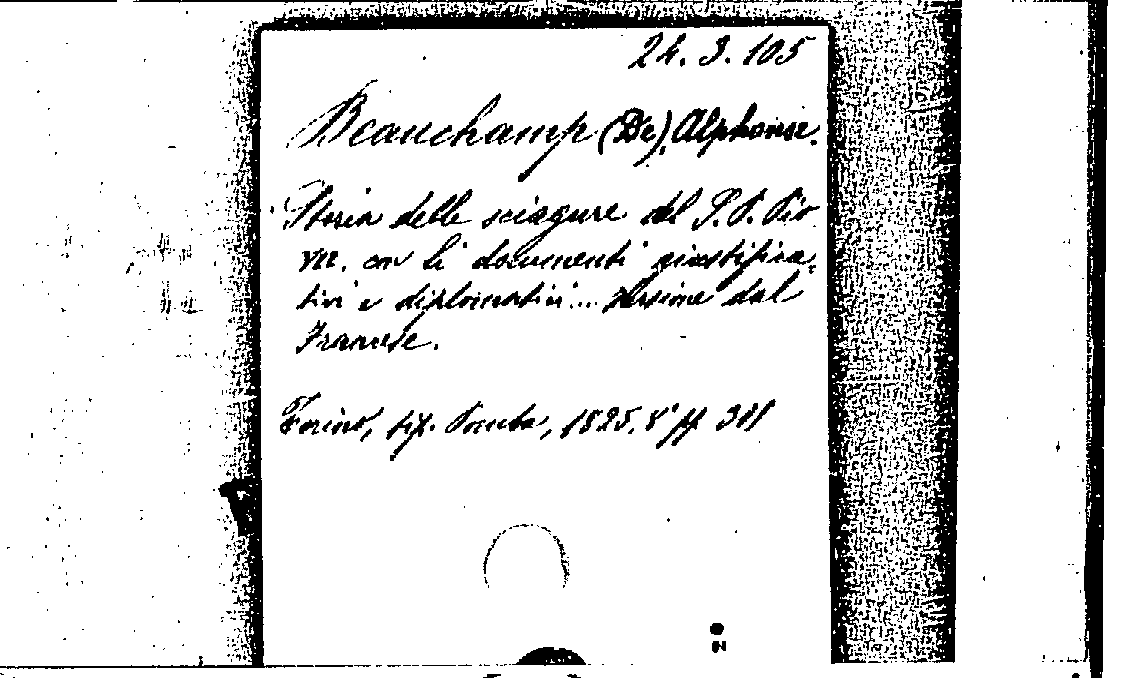 24. 3. 105
Beauchamp (De), Alphonse.
Storia delle sciagure del S. P. Pio
VII. con li documenti giustifica-
tivi e diplomatici... versione dal
Francese.
Torino, tip. Pomba, 1825. 8° pp. 301